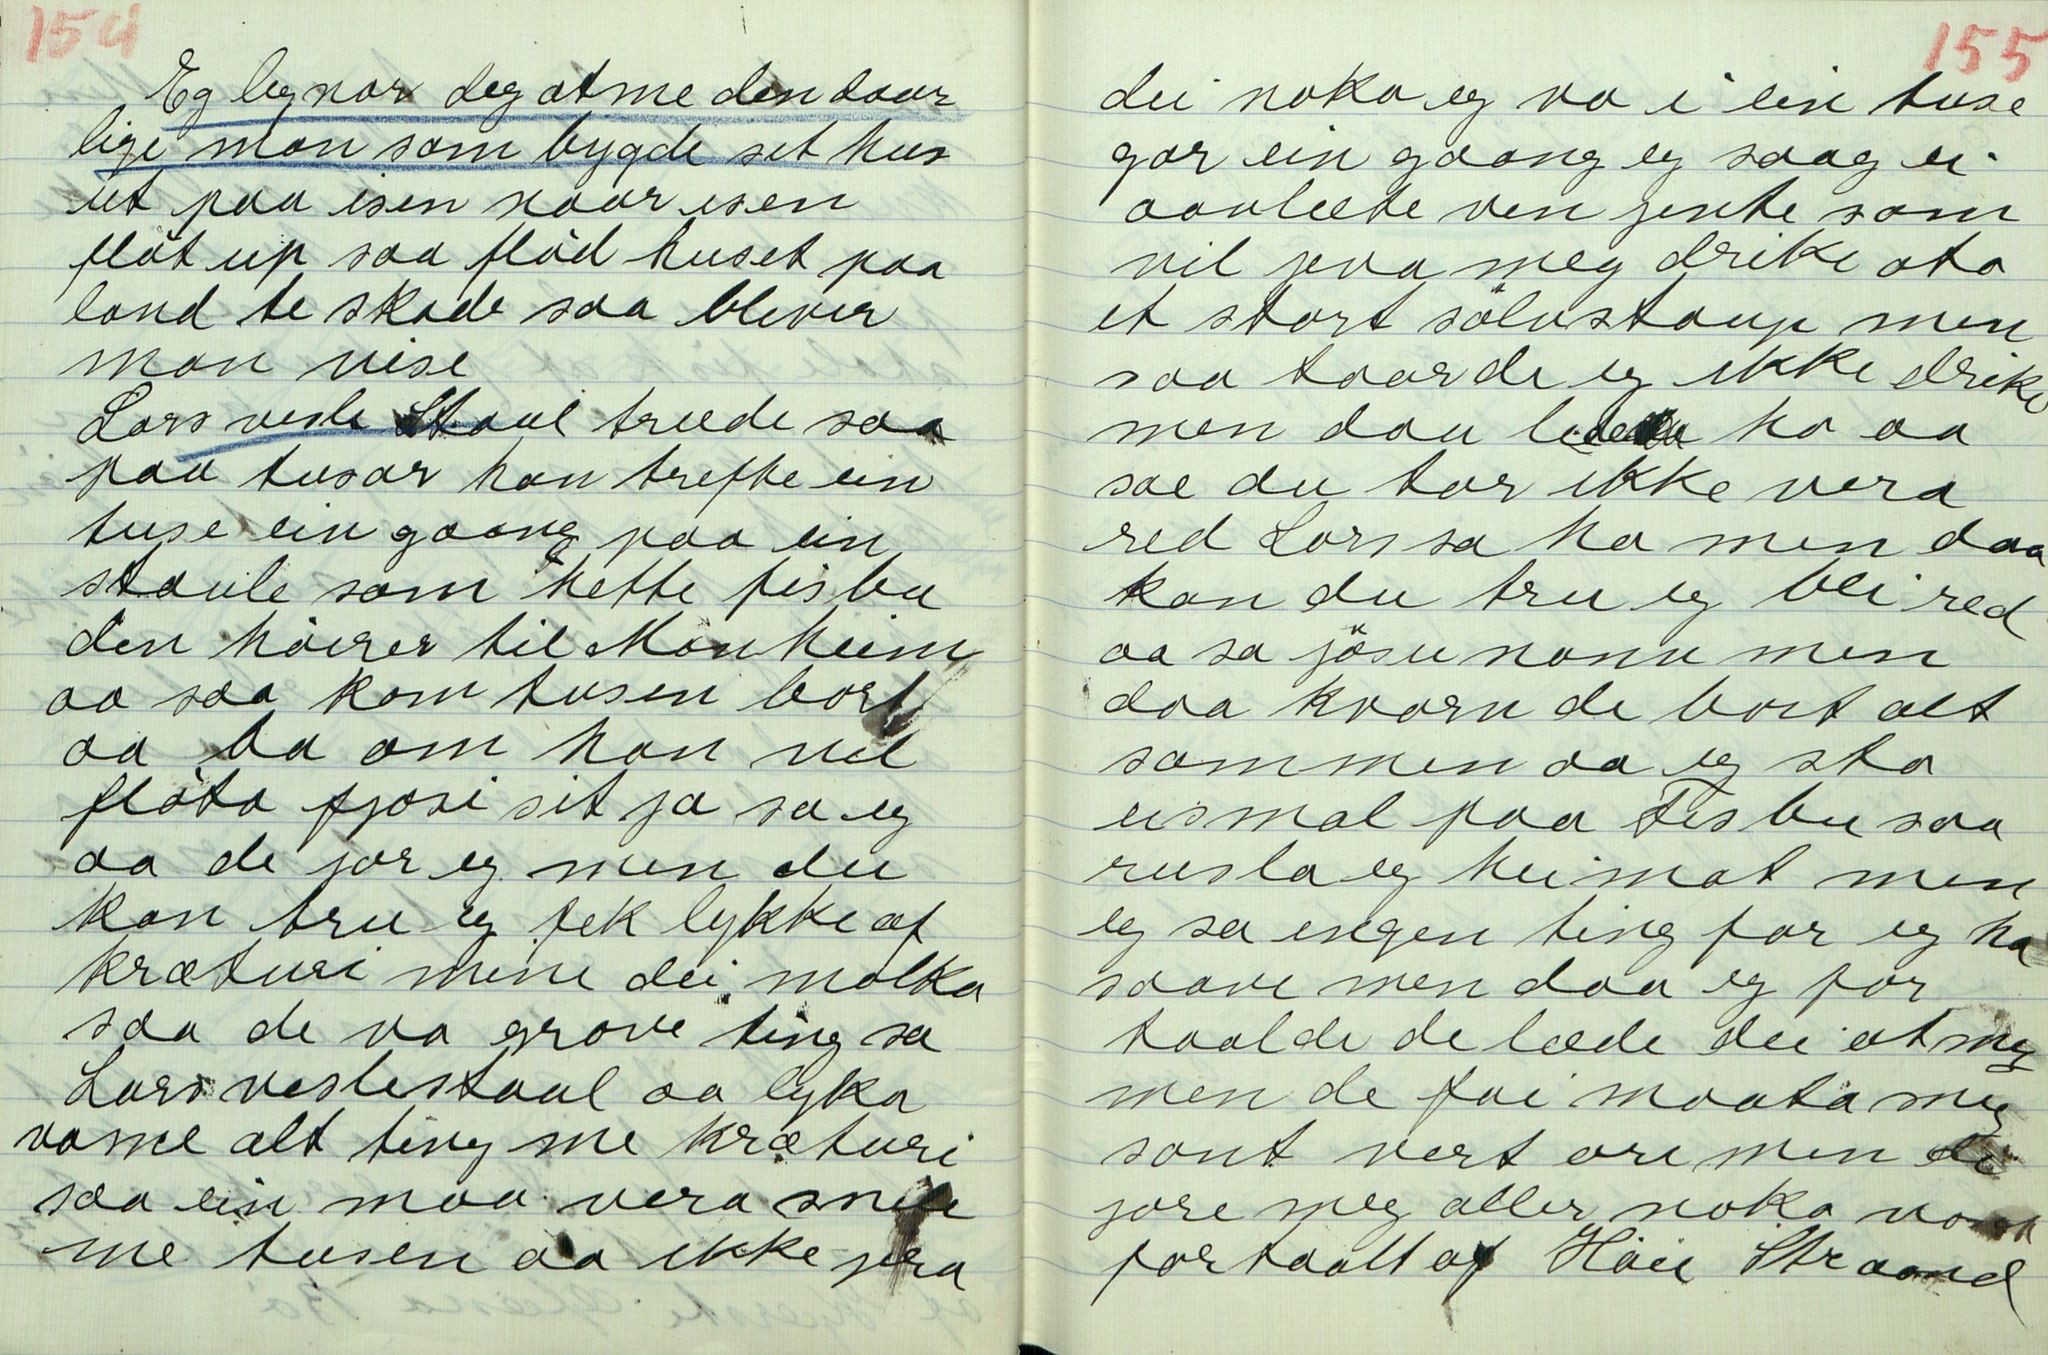 154
Eg lignar deg atme den daar
lige man som bygde set hus
ut paa isen naar isen
flöt up saa flöd huset paa
land te skade saa blever
man vise
Lars vesle Staul trude saa
paa tusar han trefte ein
tuse ein gaang paa ein
staule som hette fisbu
den höirer til Manheim
aa saa kom tusen bort
aa ba om han vil
flöta fjösi sit ja sa eg
aa de jor eg men du
kan tru eg fek lykke af
kræturi mine dei molka
saa de va grove ting sa
Lars veslestaul aa lyka
va me alt ting me kræturi
saa ein maa vera snill
me tusen aa ikke jera
155
dei noka eg va i ein tuse
gar ein gaang eg saag ei
aavlæte ven jente som
vil jeva meg drike ata
et stort sölvstaup men
saa taarde eg ikke drike
men daa ha aa
sae du tar ikke vera
red Lars sa ha men daa
kan du tru eg blei red
aa sa jösu nann men
daa kvarn de bort alt
sammen aa eg sta
eismal paa Fisbu saa
rusla eg heimat men
eg sa engen ting for eg ha
saave men daa eg for
taalde de læde dei at meg
men de fai maata meg
sant vert ori men de
jore meg aller noka vont
fortaalt af Häie Straand